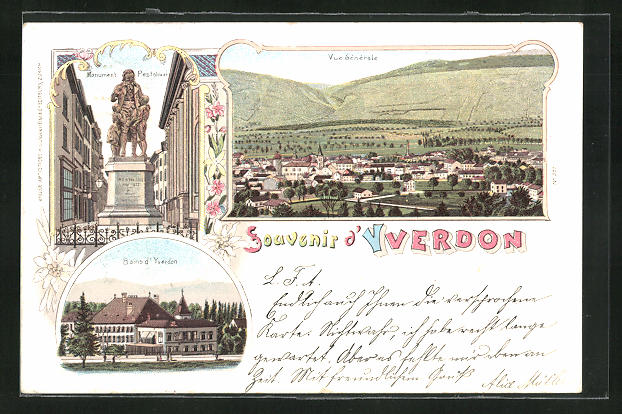 Monument Pestalozzi
Vue Générale
Souvenir d'YVERDON
Bains d'Yverdon
L. F. A.
Endlich auch Ihnen die versprochene
Karte. Nichtwahr, ich habe recht lange
gewartet. Aber es fehlte mir eben an
Zeit. Mit freundlichem Gruß